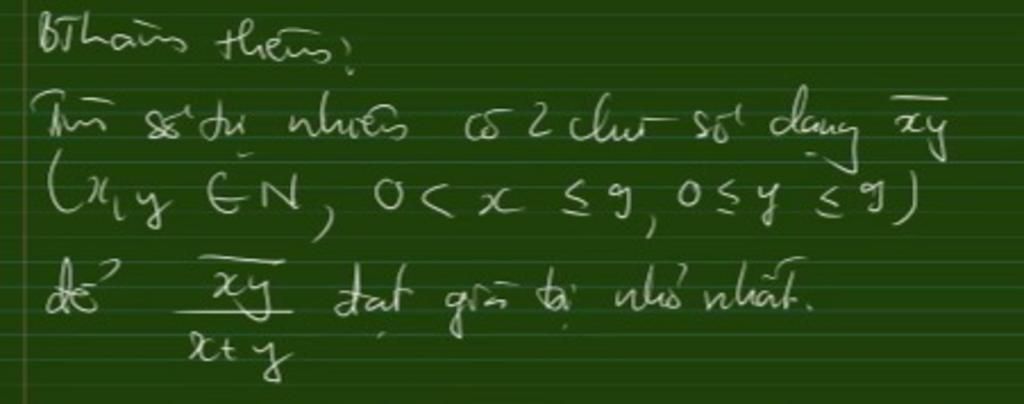 BT làm thêm:
Tìm số tự nhiên có 2 chữ số dạng $\overline{xy}$
(x, y ∈ N, 0 < x ≤ 9, 0 ≤ y ≤ 9)
để $\frac{\overline{xy}}{x+y}$ đạt giá trị nhỏ nhất.